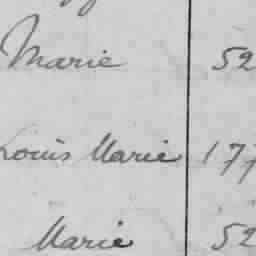 Marie 52
Louis Marie 177
Marie 52